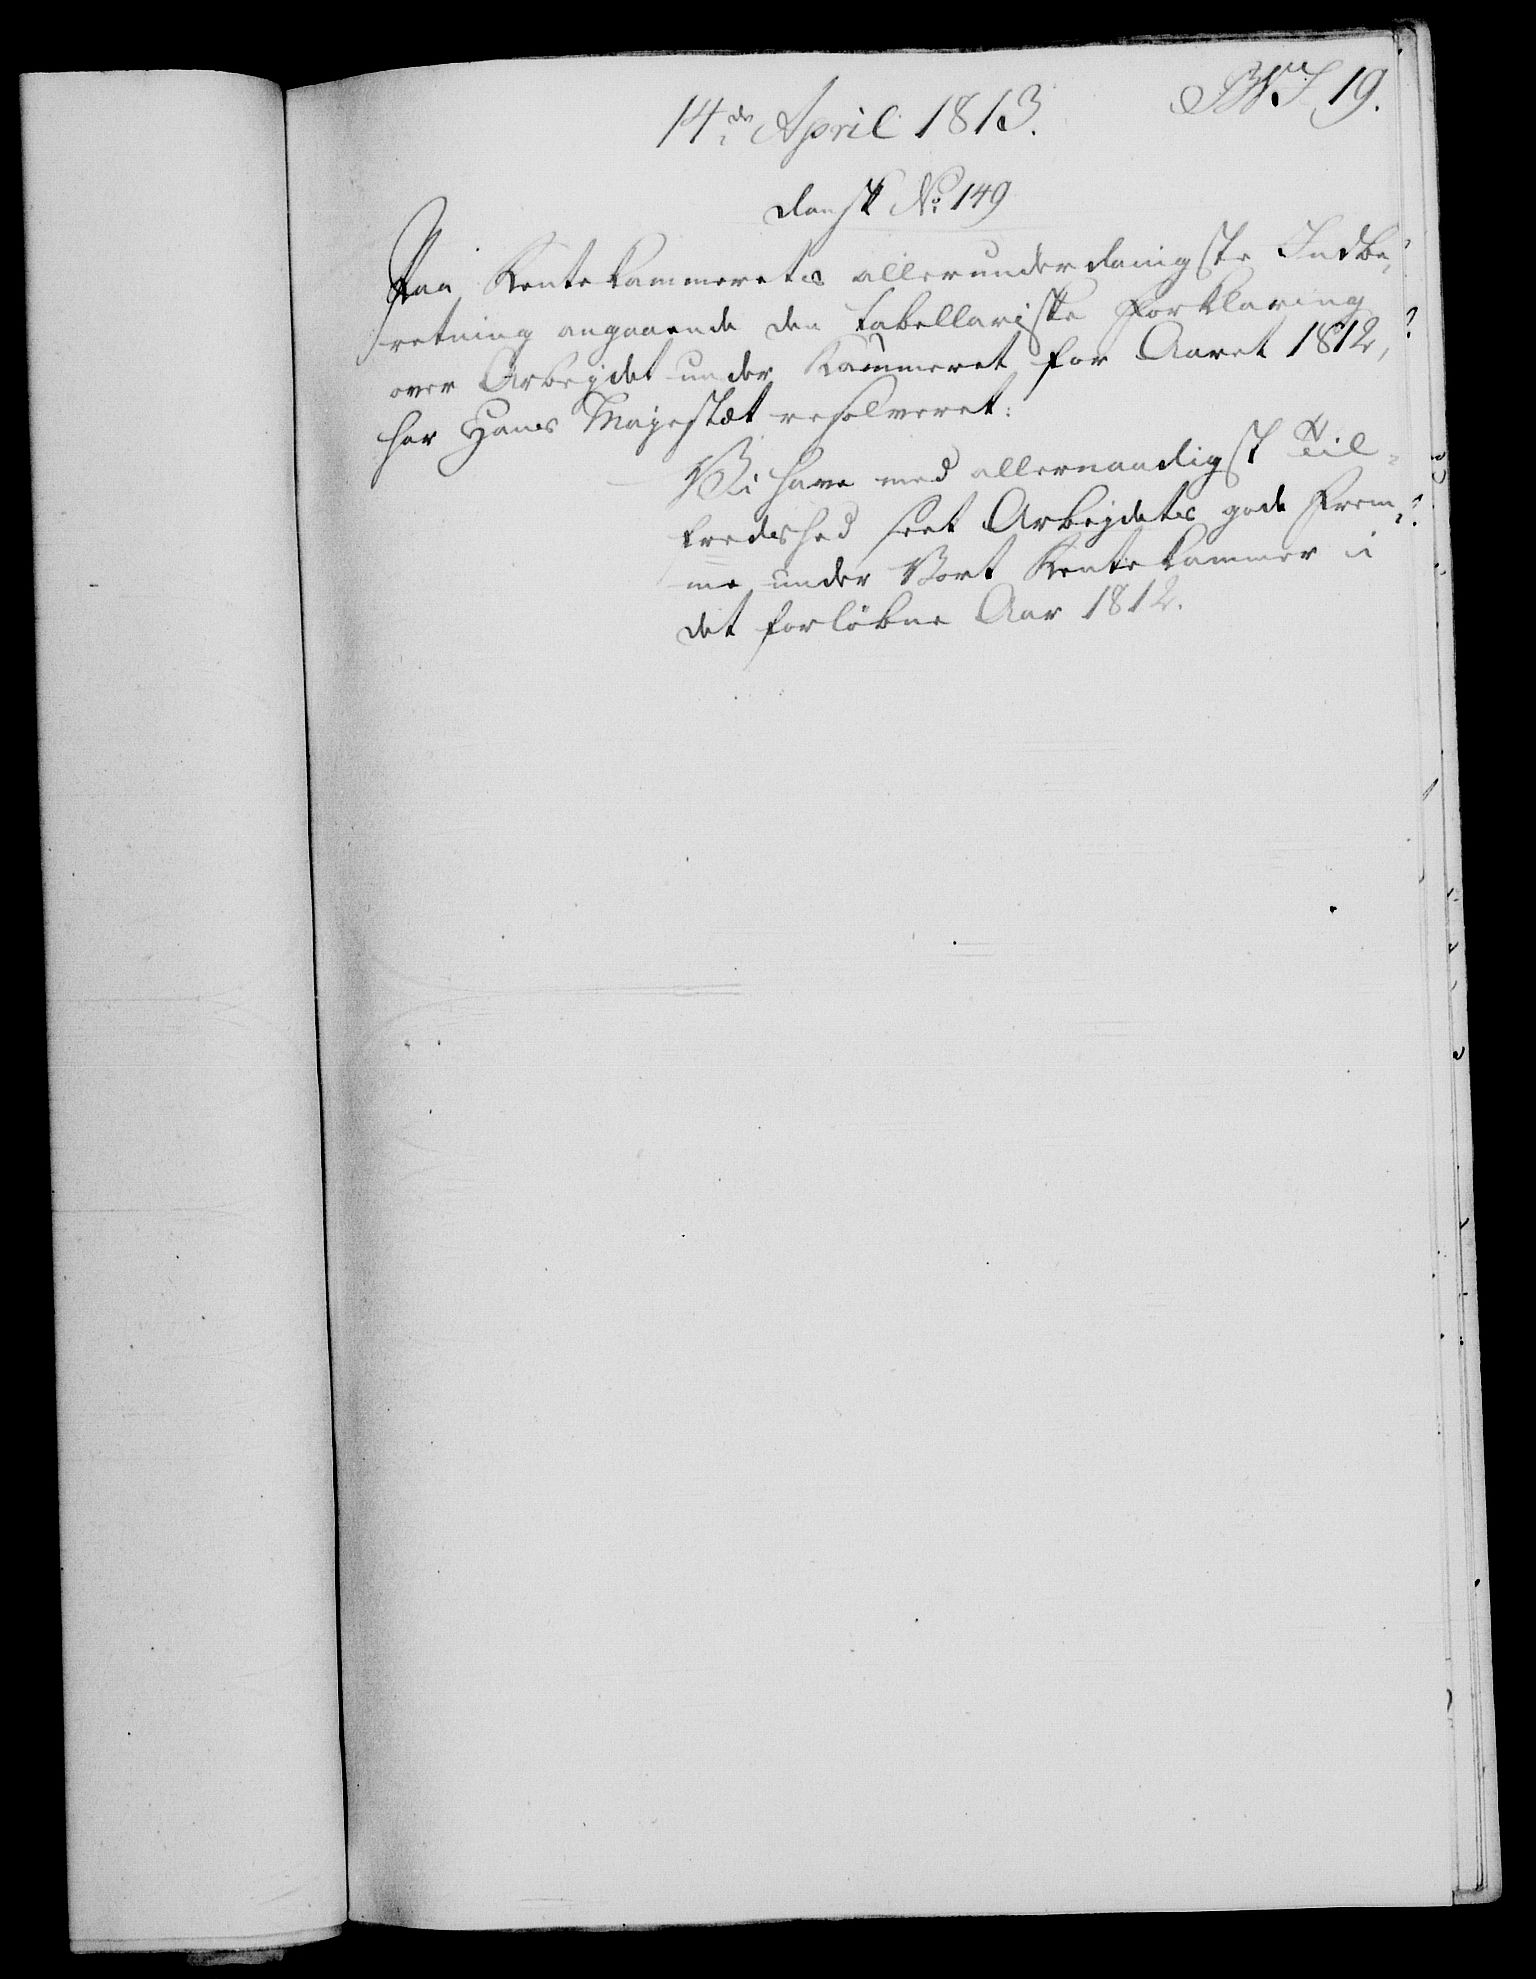 14de April 1813.
19.
dansk No 149
Paa Rentekammerets allerunderdanigste Indbe-
retning angaaende den tabellariske Forklaring
over Arbejdet under Kammeret for Aaret 1812,
har Hans Majestæt resolveret:
Vi have med allernaadigst Til-
fredshed seet Arbejdets gode Frem-
me under Vort Rentekammer i
det forløbne Aar 1812.